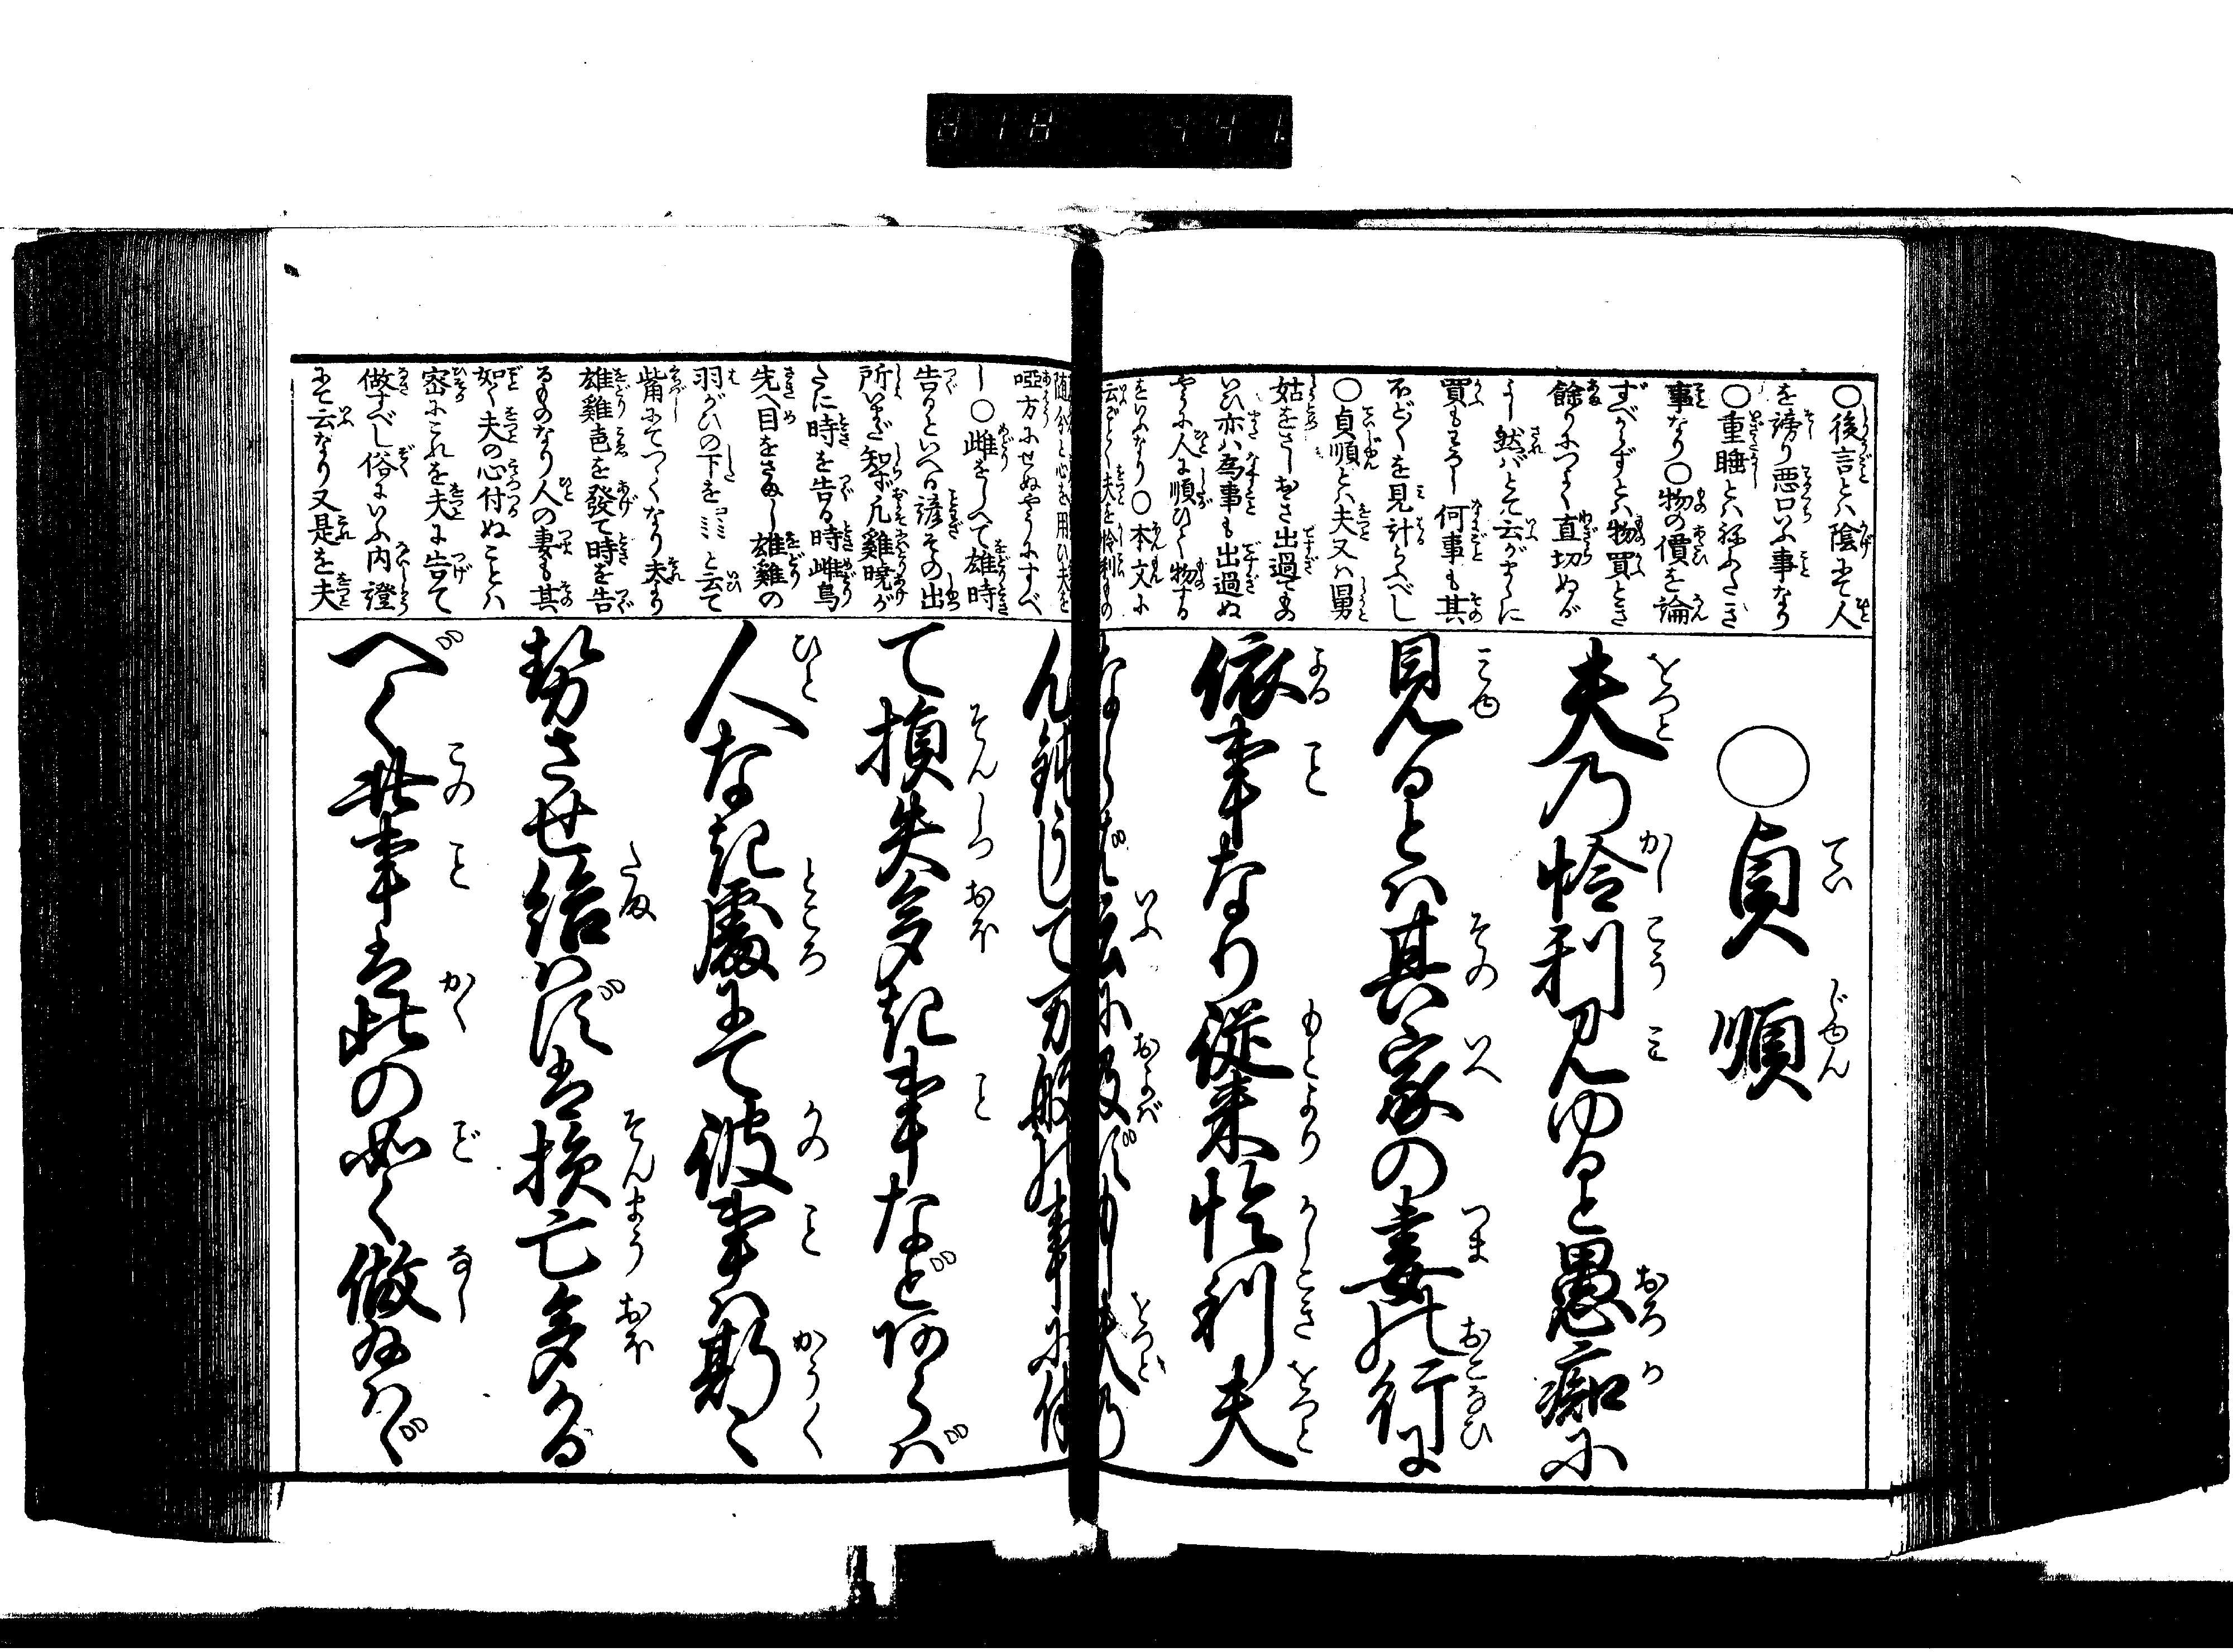 〇後言とハ陰にて人
を謗り悪口いふ事なり
〇重睡とハねふたき
事なり〇物の價を論
ずべからずとハ物買とき
餘りにつよく直切ぬが
よし然バとて云がまゝに
買もわろし何事も其
ほどくを見計らふべし
〇貞順とハ夫又ハ舅
姑をさしおき出過てもの
いひ亦ハ為事も出過ぬ
やうに人に順ひて物する
をいふなり〇本文に
云ごとく夫を怜利もの
〇貞順
夫乃怜利見ゆると愚痴に
見るとハ其家の妻の行に
依事なり従来怜利夫
ならバ云に及ばず由し夫乃
随分と心を用ひ夫を
啞方にせぬやうにすべ
し〇雌をしへて雄時
告るといへる諺その出
所いまだ知ず凡雞曉が
たに時を告る時雌鳥
先へ目をさまし雄雞の
羽がひの下をコミミと云て
觜にてつくなり夫より
雄雞声を發て時を告
るものなり人の妻も其
如く夫の心付ぬことハ
密にこれを夫に告て
做すべし俗にいふ内證
にて云なり又是を夫
ん鈍うして万般の事に付
て損失多き事などあらバ
人なき處にて彼事ハ斯く
勢させ給ハずは損亡多かる
べく此事は此の如く做給ハゞ